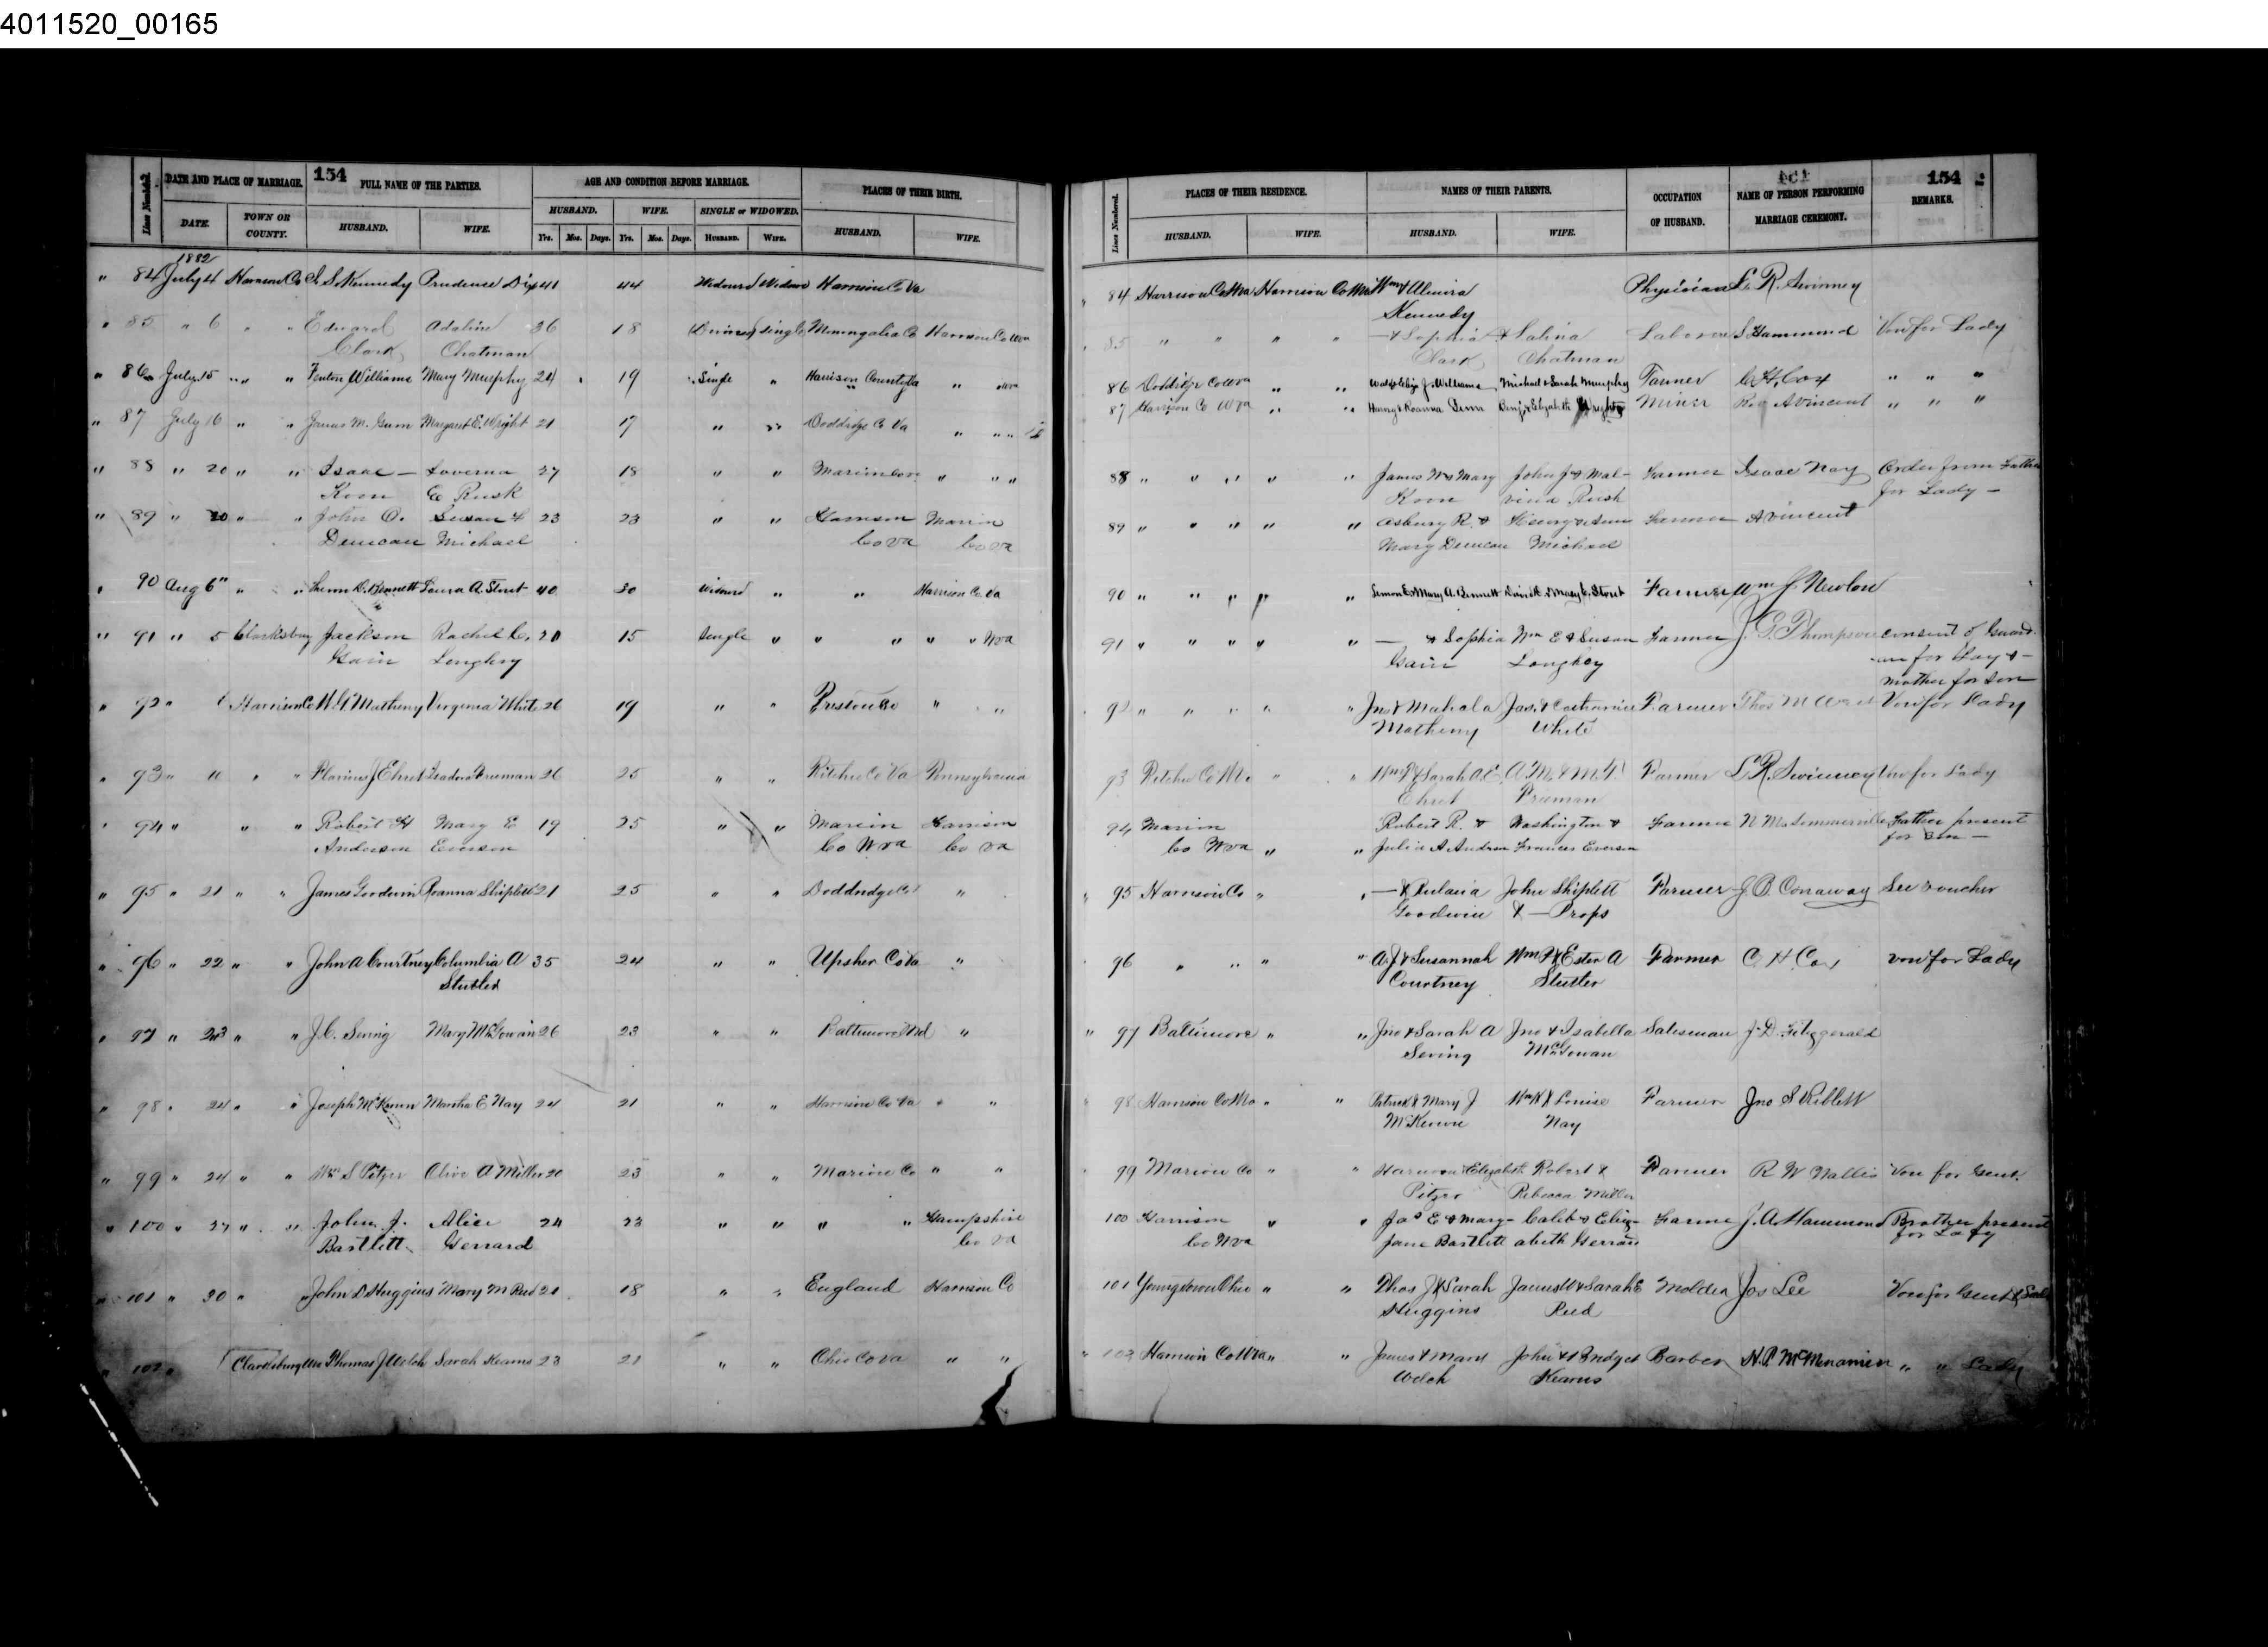 4011520_00165
154
Lines Numbered. DATE AND PLACE OF MARRIAGE. FULL NAME OF THE PARTIES. AGE AND CONDITION BEFORE MARRIAGE. PLACES OF THEIR BIRTH.
DATE. TOWN OR COUNTY. HUSBAND. WIFE. HUSBAND. WIFE. SINGLE or WIDOWED. HUSBAND. WIFE.
Yrs. Mos. Days. Yrs. Mos. Days. HUSBAND. WIFE.
1882
" 84 July 4 Harrison Co Kennedy Prudence Dix 41 44 Widowed Widow Harrison Co Va
" 85 " 6 " " Edward Adaline 26 18 single Monongalia Co Harrison Co Wva
Clark Chatman
" 86 July 15 " " Fenton Williams Mary Murphy 24 19 Single " Harrison County Va " Wva
" 87 July 16 " " James M. Gum Margaret E. Wright 21 17 " " Doddridge Co Va " " "
" 88 " 20 " " Isaac — Loverna 27 18 " " Marion Co " " "
Koon E Rusk
" 89 " 20 " " John O. Susan 23 23 " " Harrison Marion
Duncan Michael Co Va Co Va
" 90 Aug 6" " " Bennett Laura A. Stout 40 30 Widowed " " Harrison Co Va
" 91 " 5 Clarksburg Jackson Rachel C. 20 15 Single " " " " " Wva
Gain Loughry
" 92 " Harrison Co Matheny Virginia White 26 19 " " Preston Co " "
" 93 " 11 " " J Ehret Isadora Freeman 26 25 " " Ritchie Co Va Pennsylvania
" 94 " " " Robert H Mary E 19 25 " " Marion Harrison
Anderson Everson Co Wva Co Va
" 95 " 21 " " James Goodwin Roanna Shiplett 21 25 " " Doddridge Co "
" 96 " 22 " " John A Courtney Columbia A 35 24 " " Upsher Co Va "
Stutler
" 97 " 23 " " J. C. Sering Mary McGowan 26 23 " " Baltimore Md "
" 98 " 24 " " Joseph McKeown Martha E Nay 24 21 " " Harrison Co Va " "
" 99 " 24 " " Wm S Pitzer Olive A Miller 20 23 " " Marion Co " "
" 100 " 27 " " John J. Alice 24 23 " " " " Hampshire
Bartlett Gerrard Co Va
" 101 " 30 " " John D Huggins Mary M Reed 21 18 " " England Harrison Co
" 102 " Clarksburg Thomas J Welch Sarah Kearns 23 21 " " Ohio Co Va " "
154
Lines Numbered. PLACES OF THEIR RESIDENCE. NAMES OF THEIR PARENTS. OCCUPATION OF HUSBAND. NAME OF PERSON PERFORMING MARRIAGE CEREMONY. REMARKS.
HUSBAND. WIFE. HUSBAND. WIFE.
" 84 Harrison Co Wva Harrison Co Wva Wm & Almira Physician L. R. Swinney
Kennedy
" 85 " " " " — & Sophia & Salina Laborer S Hammond Vou for Lady
Clark Chatman
86 Doddridge Co Wva " " J. Williams Michael & Sarah Murphy Farmer C. H. Cox " " "
87 Harrison Co Wva " " Harvey & Roanna Gum Benj & Elizabeth Wright Miner Rev A Vincent " " "
88 " " " " " James W & Mary John J & Mal- Farmer Isaac Nay Order from Father
Koon vina Rush for Lady —
89 " " " " " Asbury R. & Henry & Ann Farmer A Vincent
Mary Duncan Michael
90 " " " " " & Mary A. Bennett David & Mary E. Stout Farmer Wm J. Newlon
91 " " " " " — & Sophia Wm E & Susan Farmer J. G. Thompson consent of Guard-
Gain Loughey ian for Lady & —
mother for son
92 " " " " " Jno & Mahala Jas. & Catherine Farmer Thos M Vou for Lady
Matheny White
93 Ritchie Co Wva " " Wm P & Sarah A. E. A. M. & M. Farmer L. R. Swinney Vou for Lady
Ehret Freeman
94 Marion Robert R. & Washington & Farmer N M. Sommerville Father present
Co Wva " " Julia A Frances Everson for Son —
95 Harrison Co " " — & Goodwin John Shiplett Farmer J. B. Conaway See voucher
& — Props
96 " " " " A. J & Susannah Wm P & Ester A Farmer C H Cox vou for Lady
Courtney Stutler
" 97 Baltimore " " Jno & Sarah A Jno & Isabella Salesman J. D. Fitzgerald
Sering McGowan
" 98 Harrison Co Wva " " Patrick & Mary J Wm & Louise Farmer Jno S Riblett
McKeown Nay
" 99 Marion Co " " & Elizabeth Robert & Farmer R W Wallis Vou for Gent.
Pitzer Rebecca Miller
100 Harrison " " Jas E & Mary- Caleb & Eliz- Farmer J. A. Hammond Brother present
Co Wva Jane Bartlett abeth Gerrard for Lady
101 Youngstown Ohio " " Thos J & Sarah James W & Sarah E Molder Jos Lee Vou for Gent & Lady
Huggins Reed
" 102 Harrison Co Wva " " James & Mary John & Bridget Barber H. P. McMenamin " " Lady
Welch Kearns